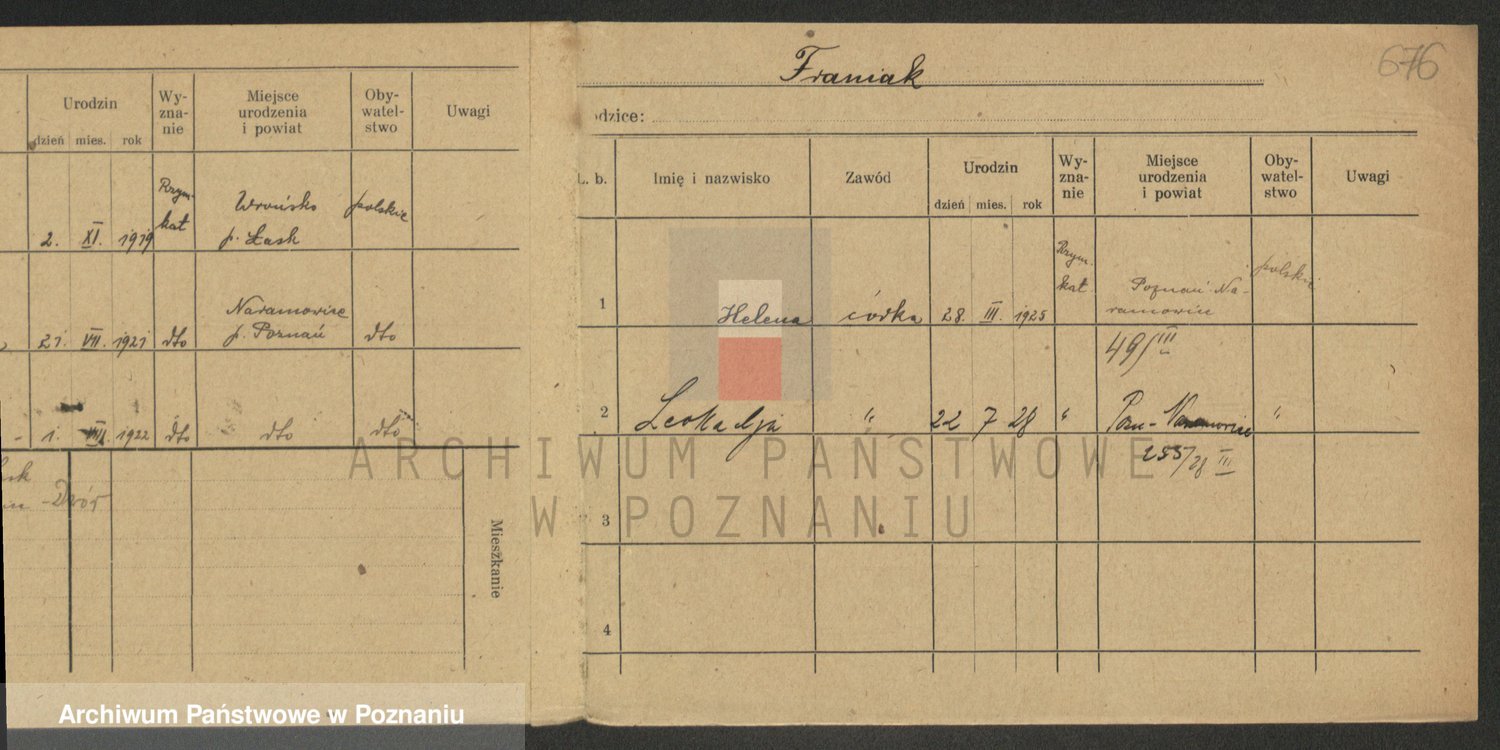 Urodzin
Wy-
zna-
nie
Miejsce
urodzenia
i powiat
Oby-
watel-
stwo
Uwagi
dzień mies. rok
2. XI. 1919
Rzym.
kat
Wrońsko
p. Łask
polskie
21. VII. 1921 dto
Naramowice
p. Poznań
dto
1. VIII. 1922 dto dto dto
Dwór
Mieszkanie
Franiak
676
odzice:
L. b.
Imię i nazwisko
Zawód
Urodzin
dzień mies. rok
Wy-
zna-
nie
Miejsce
urodzenia
i powiat
Oby-
watel-
stwo
Uwagi
1 Helena córka 28. III. 1925
Rzym.
kat.
Poznań Na-
ramowice
polskie
49/III
2 Leokadja " 22 7 28 " Pozn-Naramowice "
255/28 III
3
4
ARCHIWUM PAŃSTWOWE
W POZNANIU
Archiwum Państwowe w Poznaniu